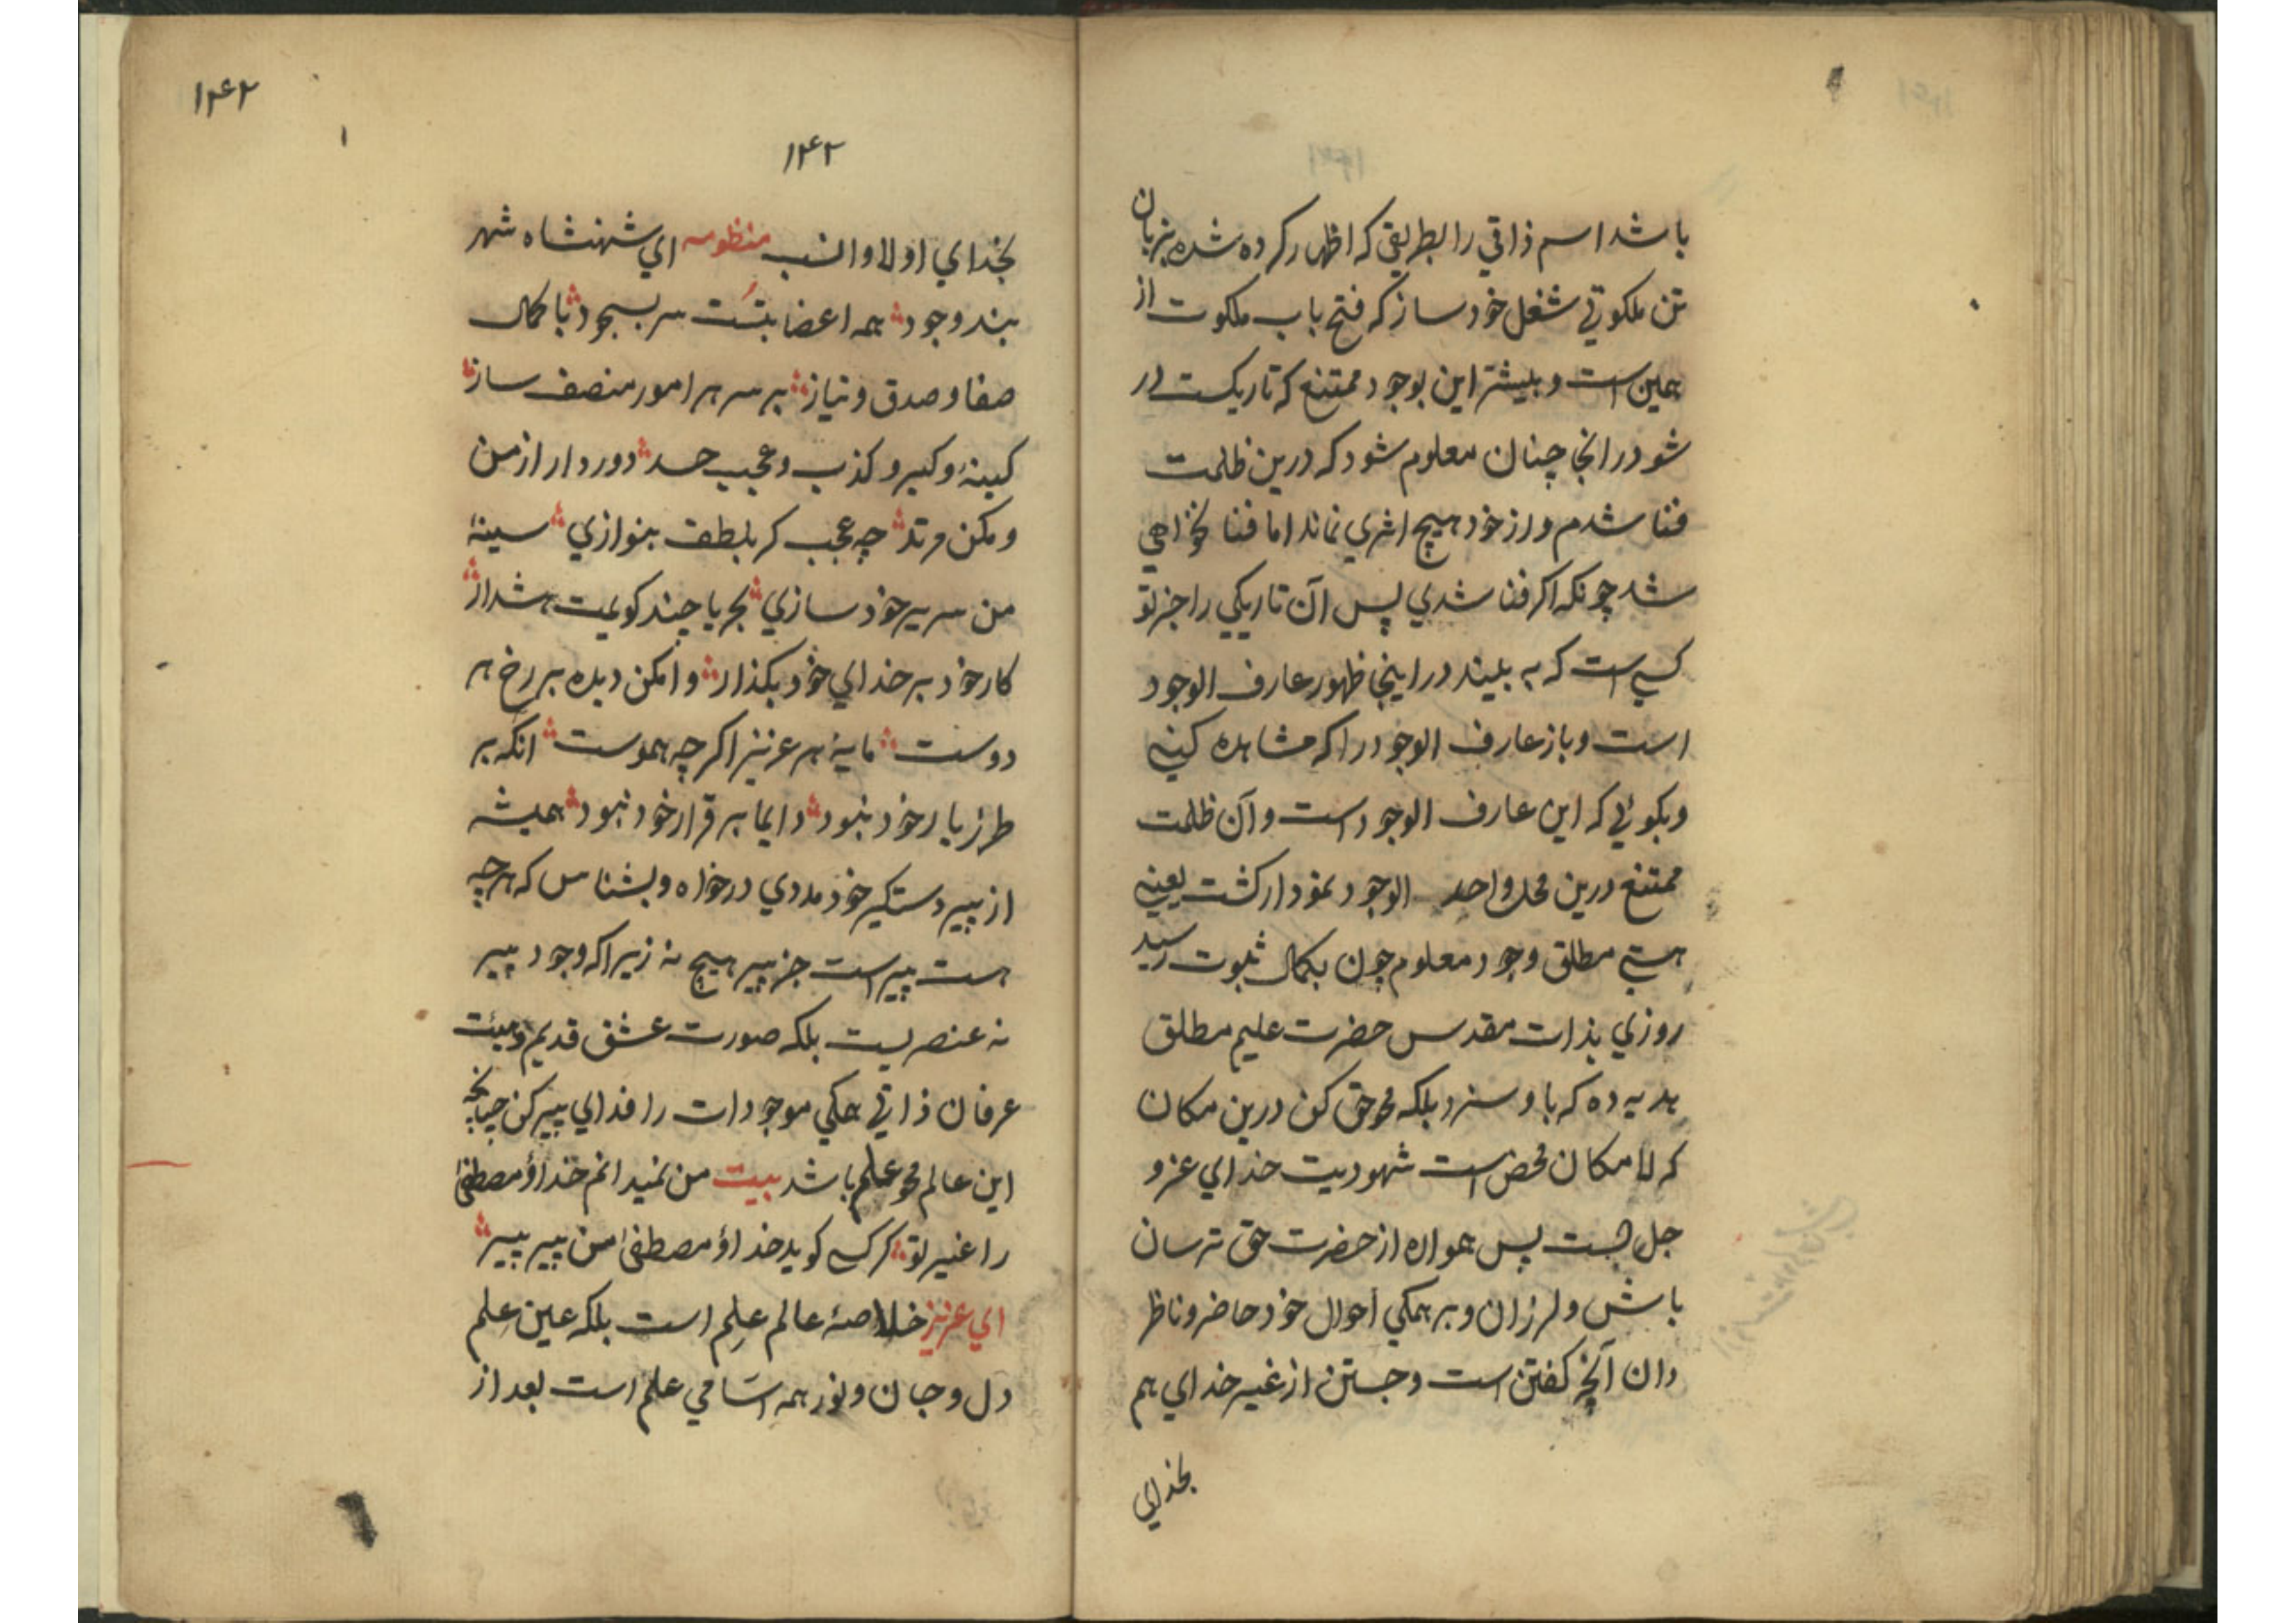 باشد اسم ذاتي را بطريقي که اظهار کرده شده بزبان
تن ملکوتي شغل خود ساز که فتح باب ملکوت از
همين است و بيشتر اين بوجود ممتنع که تاريکست در
شود در انجا چنان معلوم شود که درين ظلمت
فنا شدم و از خود هيچ اثري نماند اما فنا نخواهي
شد چونکه اکر فنا شدي پس آن تاريکي را جز تو
کسي است که به بيند در اينجا ظهور عارف الوجود
است و باز عارف الوجود را که مشاهده کني
و بکوئي که اين عارف الوجود است و آن ظلمت
ممتنع درين محل واحد الوجود نمودار کشت يعني
هستي مطلق وجود معلوم چون بکمال ثبوت رسيد
روزي بذات مقدس حضرت عليم مطلق
هديه ده که باو سزد بلکه محو حق کن درين مکان
که لا مکان محض است شهوديت خداي عز و
جل هست پس همواره از حضرت حق ترسان
باش و لرزان و بر همکي احوال خود حاضر و ناظر
دان آنچه کفتن است و جستن از غير خداي هم
بخداي
۱۴۲
۱۴۲
بخداي اولا و انسب منظومه اي شهنشاه شهر
بند وجود همه اعضا بتست سر بسجود با کمال
صفا و صدق و نياز بر سر هر امور منصف ساز
کينه و کبر و کذب و عجب حسد دور دار از من
و مکن مرتد چه عجب کر بلطف بنوازي سينهٔ
من سرير خود سازي بحريا چند کويمت هشدار
کار خود بر خداي خود بکذار وا مکن ديده بر رخ هر
دوست مايهٔ هر عزيز اکرچه هموست انکه بر
طرز يار خود نبود دايما بر قرار خود نبود هميشه
از پير دستکير خود مددي درخواه و بشناس که هرچه
هست پير است جز پير هيچ نه زيرا که وجود پير
نه عنصريست بلکه صورت عشق قديم و هيئت
عرفان ذاتي همکي موجودات را فداي پير کن چنانچه
اين عالم محو علم باشد بيت من نميدانم خدا و مصطفىٰ
را غير تو کر کسي کويد خدا و مصطفىٰ من پير پير
اي عزيز خلاصهٔ عالم علم است بلکه عين علم
دل و جان و نور همه اسامي علم است بعد از